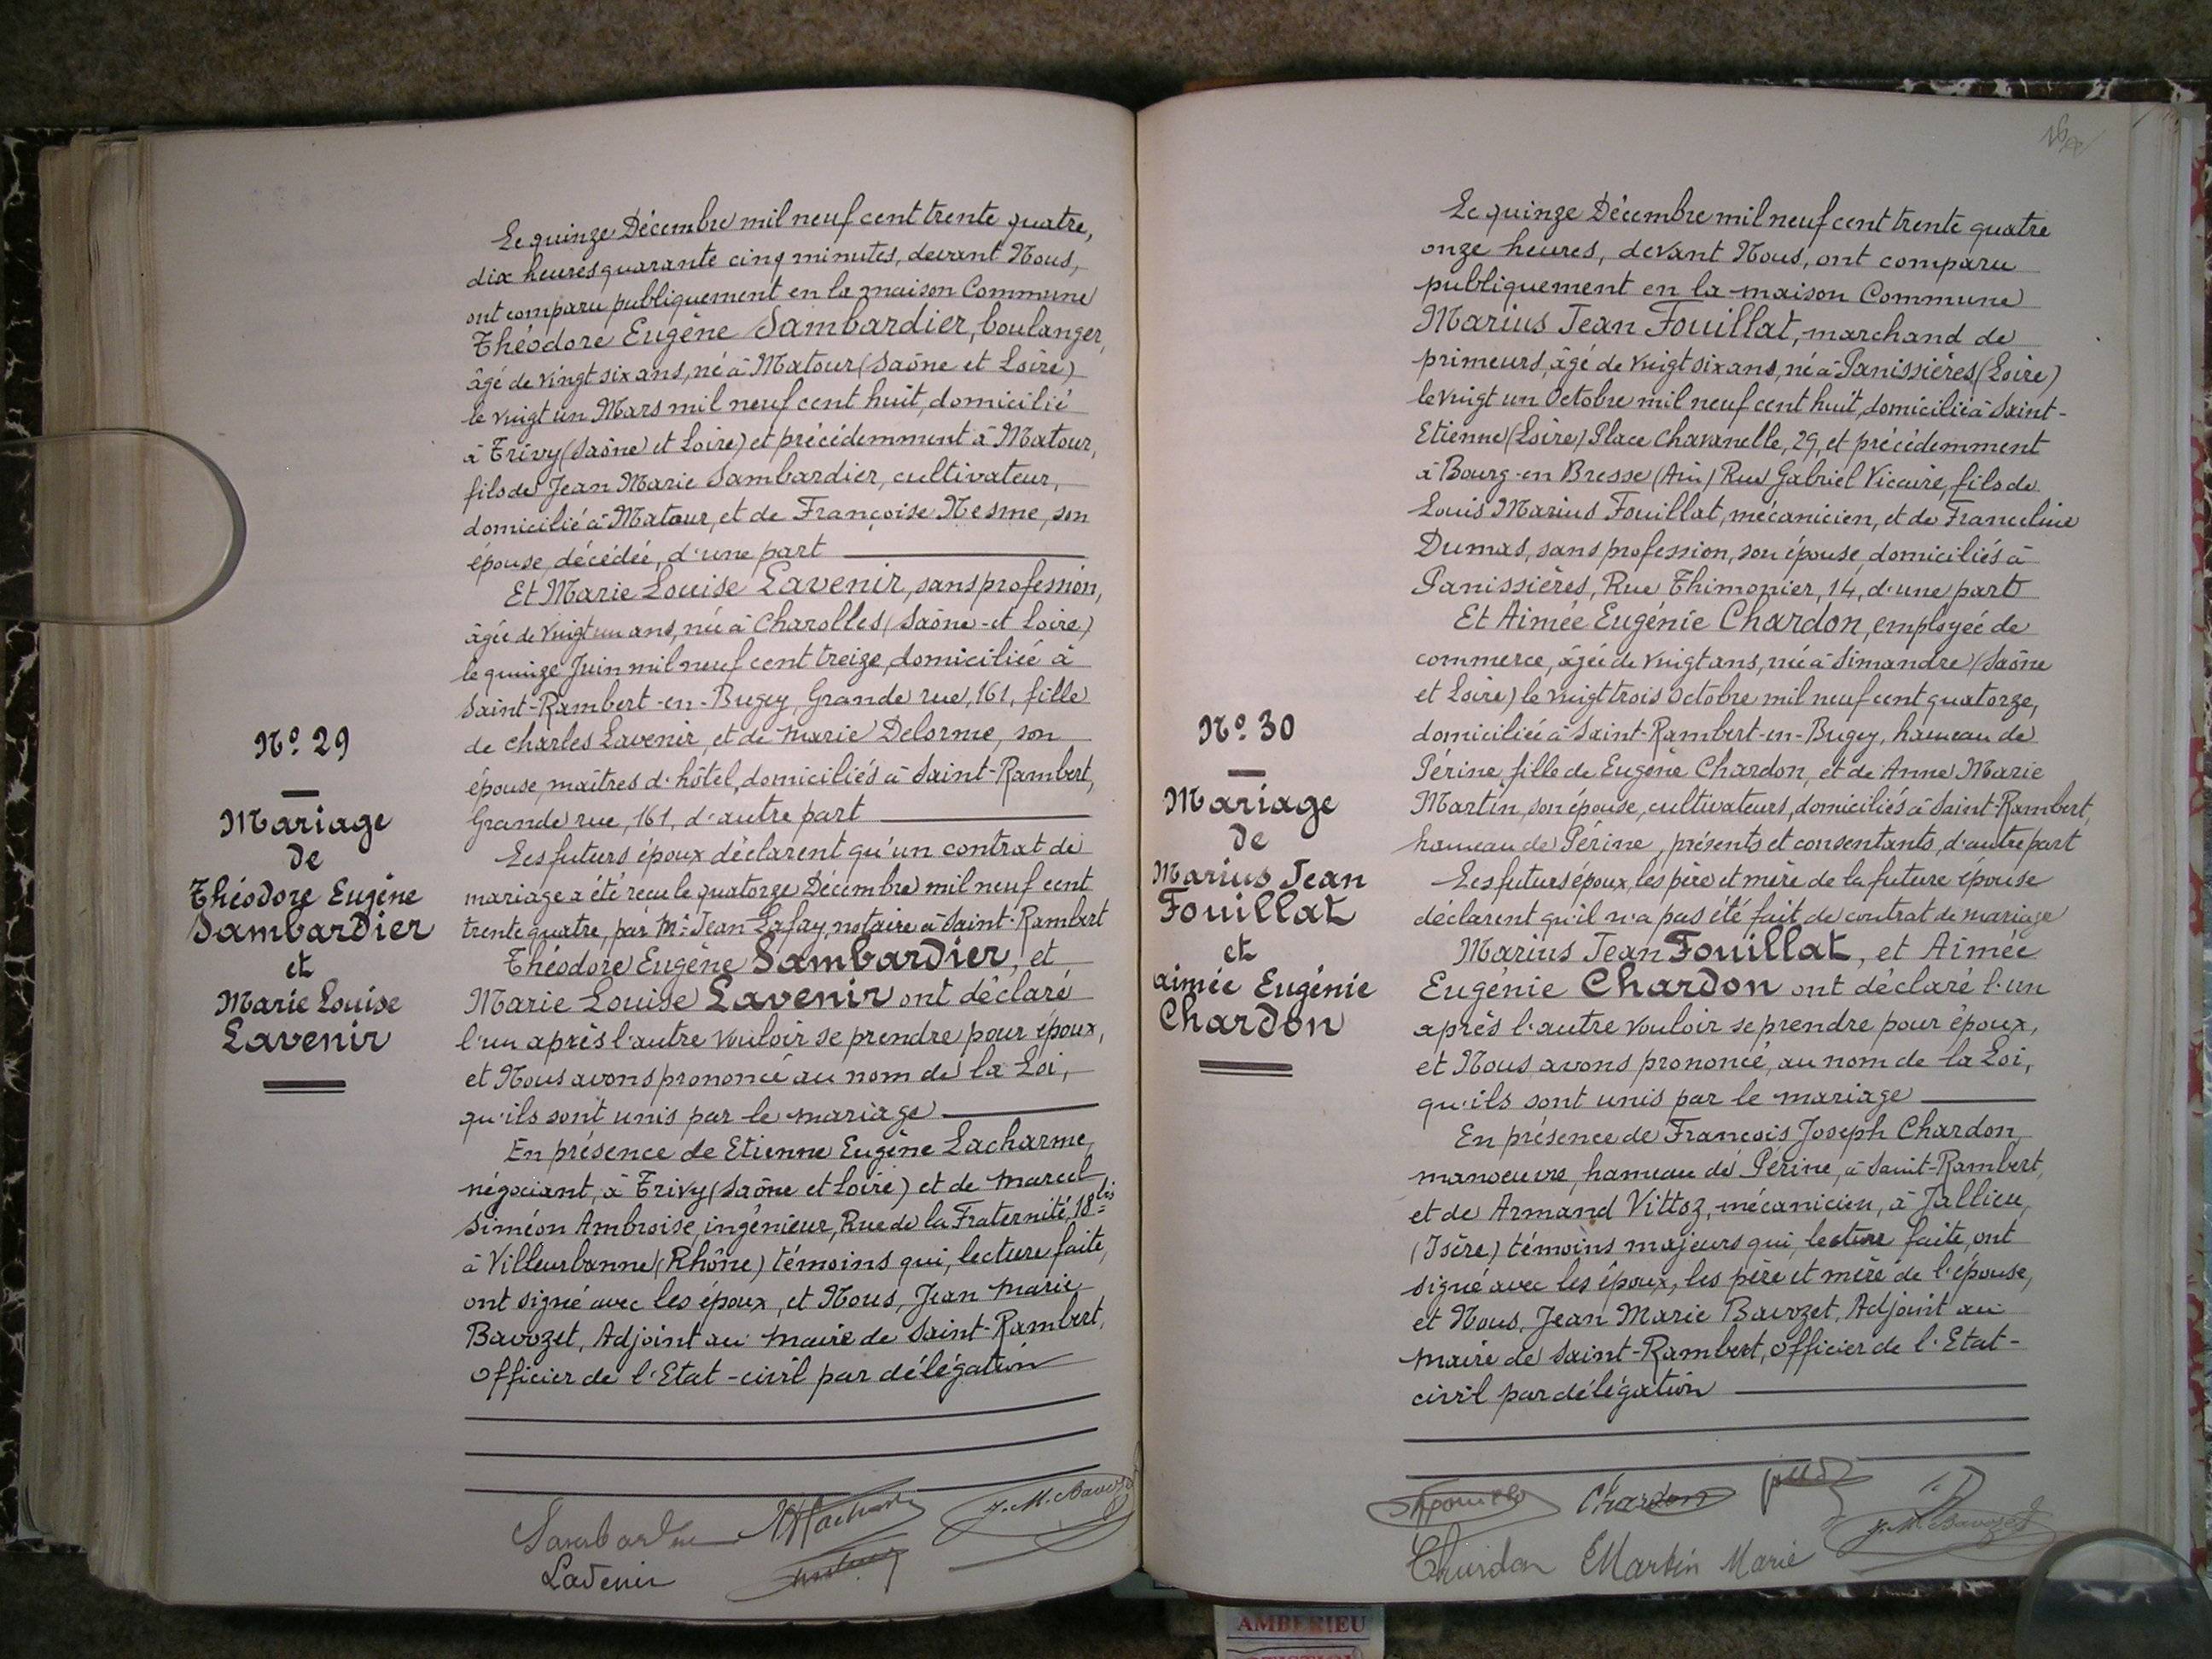 Nº 29
Mariage
de
Théodore Eugène
Sambardier
et
Marie Louise
Lavenir
Le quinze Décembre mil neuf cent trente quatre,
dix heures quarante cinq minutes, devant Nous,
ont comparu publiquement en la maison Commune
Théodore Eugène Sambardier, boulanger,
âgé de vingt six ans, né à Matour (Saône et Loire)
le vingt un Mars mil neuf cent huit, domicilié
à Trivy (Saône et Loire) et précédemment à Matour,
fils de Jean Marie Sambardier, cultivateur,
domicilié à Matour, et de Françoise Nesme, son
épouse, décédée, d'une part
Et Marie Louise Lavenir, sans profession,
âgée de vingt un ans, née à Charolles (Saône-et Loire)
le quinze Juin mil neuf cent treize, domiciliée à
Saint-Rambert-en-Bugey, Grande rue, 161, fille
de Charles Lavenir, et de Marie Delorme, son
épouse, maîtres d'hôtel, domiciliés à Saint-Rambert,
Grande rue, 161, d'autre part
Les futurs époux déclarent qu'un contrat de
mariage a été recu le quatorze Décembre mil neuf cent
trente quatre, par Me Jean Lafay, notaire à Saint-Rambert
Théodore Eugène Sambardier, et
Marie Louise Lavenir ont déclaré
l'un après l'autre vouloir se prendre pour époux,
et Nous avons prononcé au nom de la Loi,
qu'ils sont unis par le mariage
En présence de Etienne Eugène Lacharme,
négociant, à Trivy (Saône et Loire) et de Marcel
Siméon Ambroise, ingénieur, Rue de la Fraternité, 18 bis
à Villeurbanne (Rhône) témoins qui, lecture faite,
ont signé avec les époux, et Nous, Jean Marie
Bavozet, Adjoint au Maire de Saint-Rambert,
Officier de l'Etat-civil par délégation
Sambardier
J. M. Bavozet
Lavenir
Nº 30
Mariage
de
Marius Jean
Fouillat
et
Aimée Eugénie
Chardon
Le quinze Décembre mil neuf cent trente quatre
onze heures, devant Nous, ont comparu
publiquement en la maison Commune
Marius Jean Fouillat, marchand de
primeurs, âgé de vingt six ans, né à Panissières (Loire)
le vingt un Octobre mil neuf cent huit, domicilié à Saint-
Etienne (Loire) Place Chavanelle, 29, et précédemment
à Bourg-en Bresse (Ain) Rue Gabriel Vicaire, fils de
Louis Marius Fouillat, mécanicien, et de Franceline
Dumas, sans profession, son épouse, domiciliés à
Panissières, Rue Thimonier, 14, d'une part
Et Aimée Eugénie Chardon, employée de
commerce, âgée de vingt ans, née à Simandre (Saône
et Loire) le vingt trois Octobre mil neuf cent quatorze,
domiciliée à Saint-Rambert-en-Bugey, hameau de
Périne, fille de Eugène Chardon, et de Anne Marie
Martin, son épouse, cultivateurs, domiciliés à Saint-Rambert,
hameau de Périne, présents et consentants, d'autre part
Les futurs époux, les père et mère de la future épouse
déclarent qu'il n'a pas été fait de contrat de mariage
Marius Jean Fouillat, et Aimée
Eugénie Chardon ont déclaré l'un
après l'autre vouloir se prendre pour époux,
et Nous avons prononcé, au nom de la Loi,
qu'ils sont unis par le mariage
En présence de Francois Joseph Chardon,
manoeuvre, hameau de Périne, à Saint-Rambert,
et de Armand Vittoz, mécanicien, à Jallieu,
(Isère) témoins majeurs qui, lecture faite, ont
signé avec les époux, les père et mère de l'épouse,
et Nous, Jean Marie Bavozet, Adjoint au
Maire de Saint-Rambert, Officier de l'Etat-
civil par délégation
Chardon
J. M. Bavozet
Chardon Martin Marie
AMBERIEU